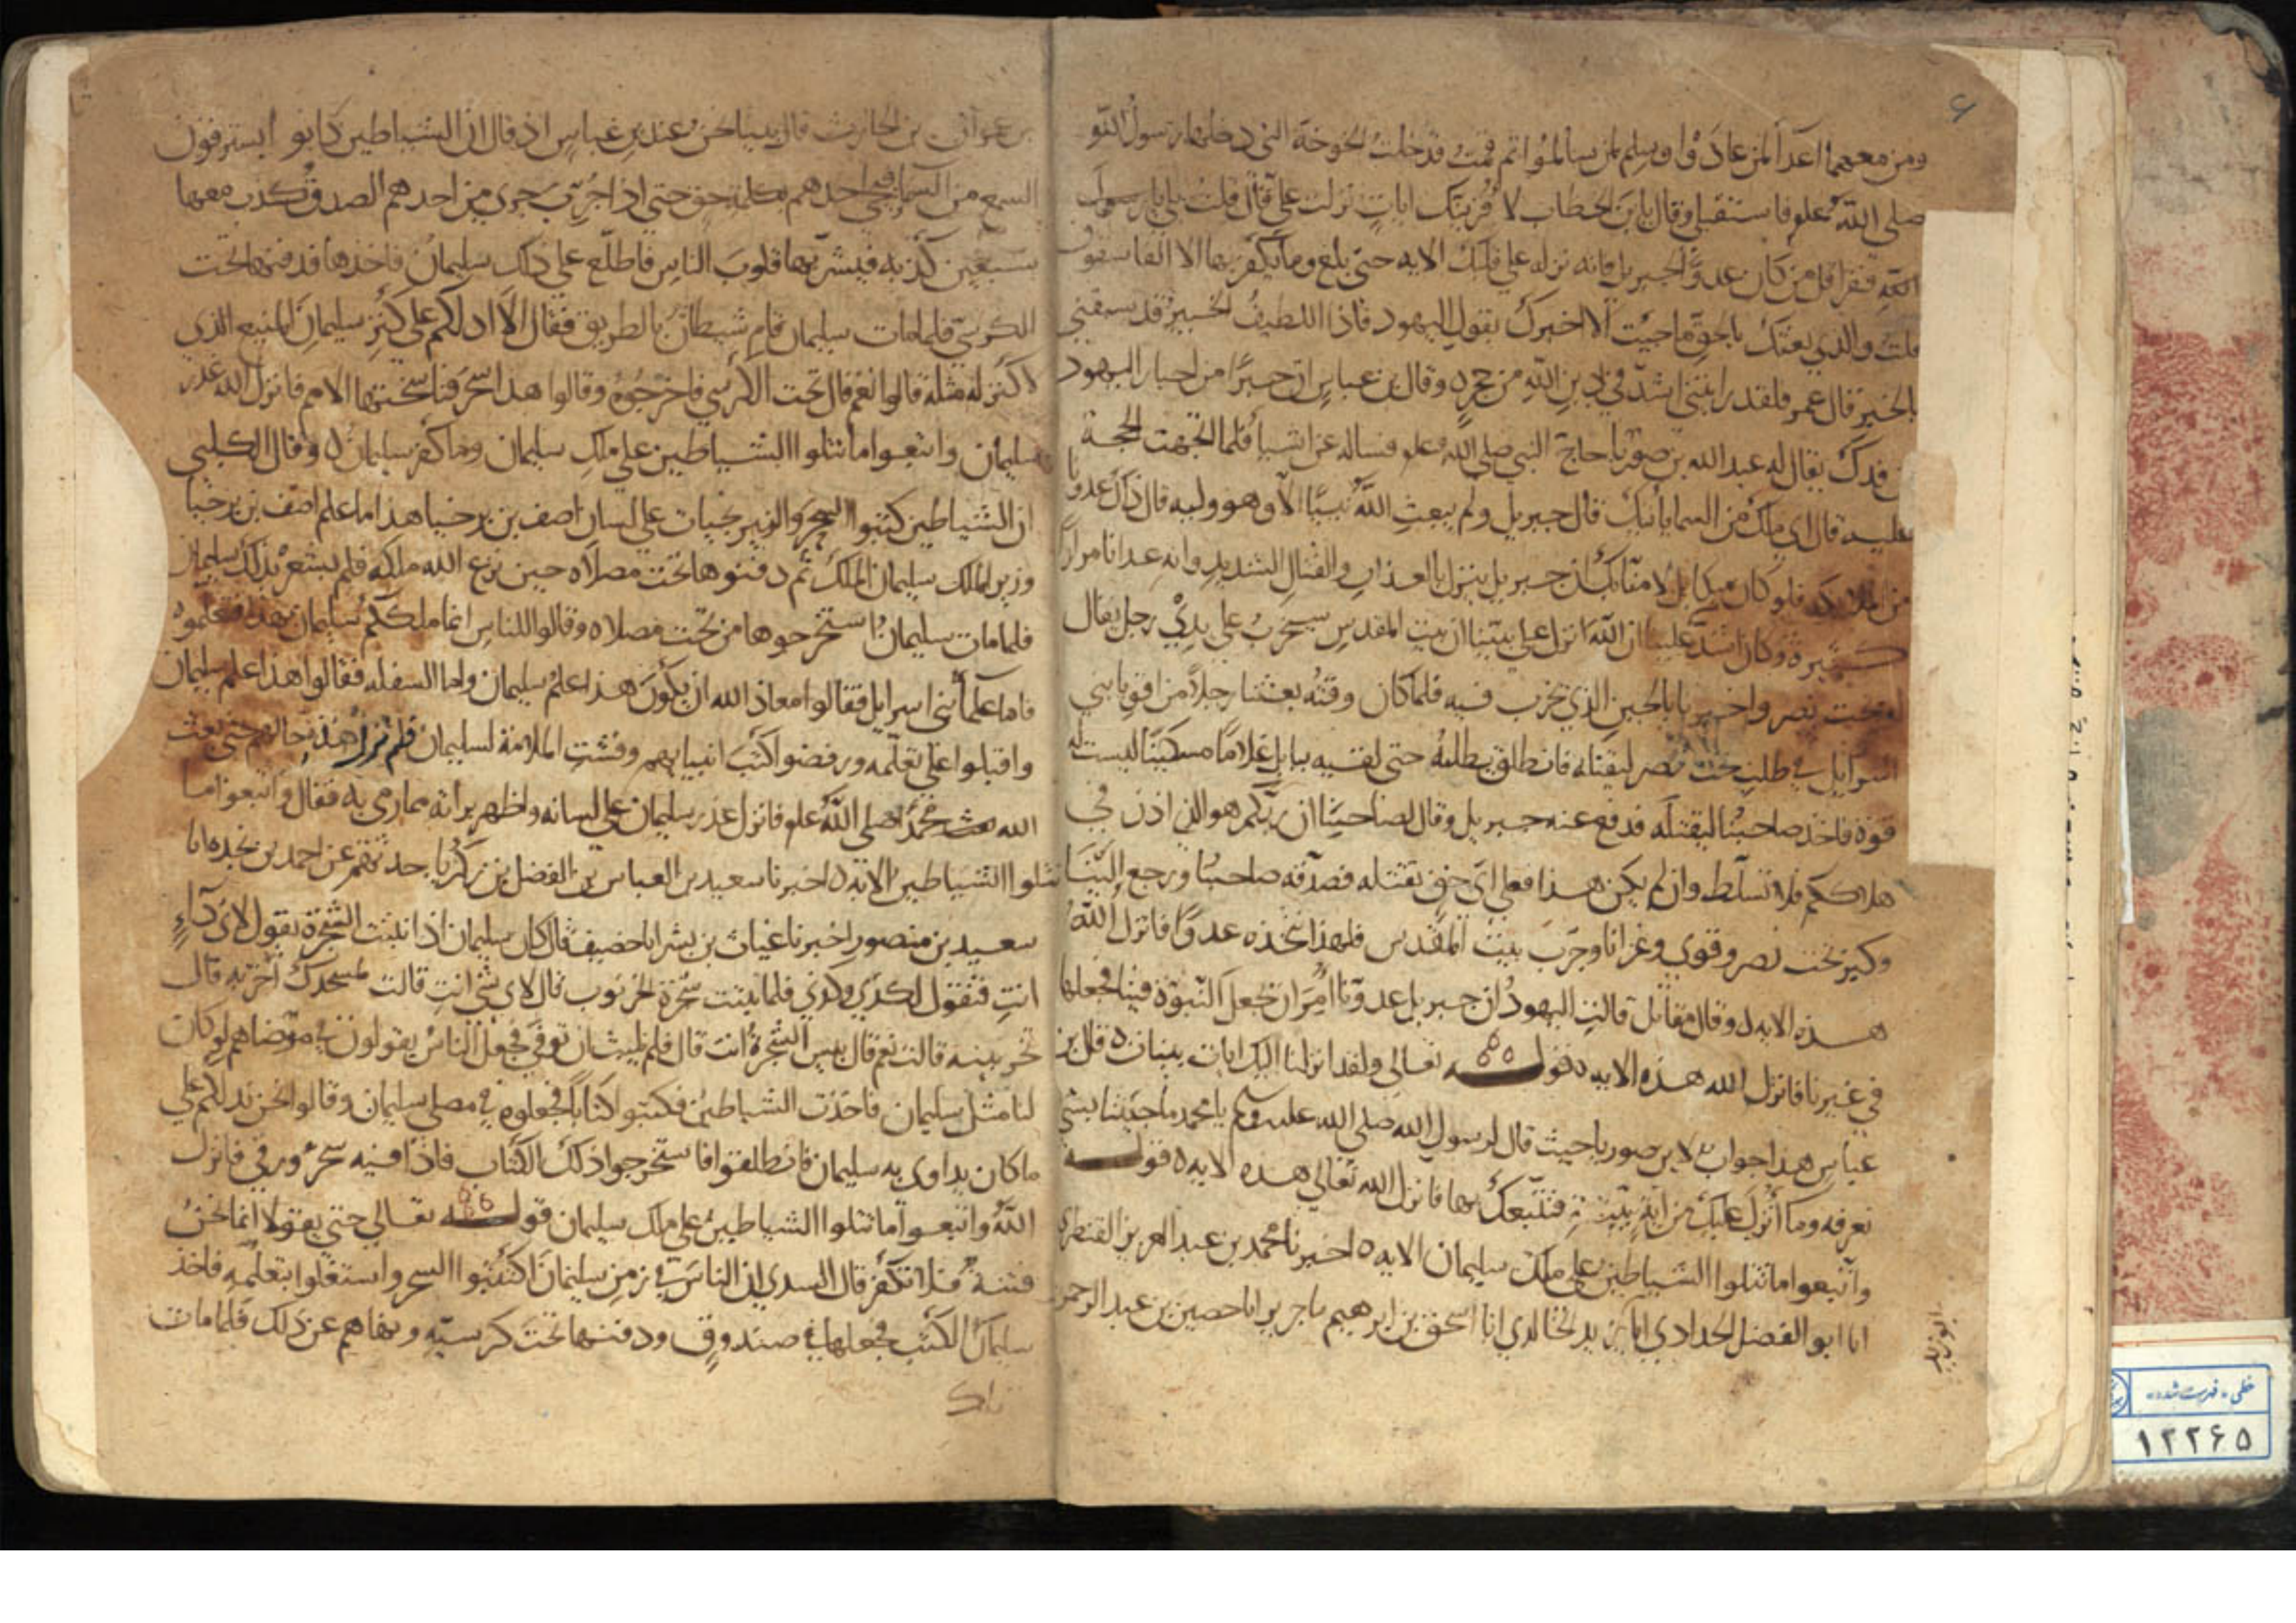 ومن معهما اعداً لمن عادَوْا وسِلم لمن سالموا ثم قمت فدخلت الخوخة التي دخلها رسول الله
صلى الله علم فاستقبلني وقال يابن الخطاب لا اُقْرِئك اياتٍ نزلت علي قال قلت بلى يا رسول
الله فقرا قل من كان عدوًّا لجبريل فانه نزله على قلبك الايه حتى بلغ وما يكفر بها الا الفاسقون
قلت والذي بعثك بالحق ما جيت الا اخبرك بقول اليهود فاذا اللطيف الخبير قد سبقني
بالخبر قال عمر فلقد رايتني اشد في دين الله من حجر ٥ وقال بن عباس ان حبرًا من احبار اليهود
من فدك يقال له عبد الله بن صوريا حاج النبي صلى الله علم فساله عن اشيا فلما اتجهت الحجة
عليه قال اي ملك من السما ياتيك قال جبريل ولم يبعث الله نبيًّا الا وهو وليه قال ذاك عدونا
من الملائكه فلو كان ميكايل لامنّا بك ان جبريل ينزل بالعذاب والقتال الشديد وانه عدانا مرارًا
كثيرة وكان اشد علينا ان الله انزل على نبينا ان بيت المقدس سيخرب على يدي رجل يقال
له بخت نصر واخبرنا بالحين الذي يخرب فيه فلما كان وقته بعثنا رجلاً من اقويا بني
اسرايل في طلب بخت نصر ليقتله فانطلق يطلبه حتى لقيه ببابل غلامًا مسكينًا ليست له
قوة فاخذه صاحبنا ليقتله فدفع عنه جبريل وقال لصاحبنا ان ربكم هو الذي اذن في
هلاككم فلا تسلط وان لم يكن هذا فعلى اي حق تقتله فصدقه صاحبنا ورجع إلينا
وكبر بخت نصر وقوي وغزانا وخرب بيت المقدس فلهذا نتخذه عدوًّا فانزل الله
هذه الايه ٥ وقال مقاتل قالت اليهود ان جبريل عدونا اُمِرَ ان يجعل النبوة فينا فجعلها
في غيرنا فانزل الله هذه الايه ٥ قوله تعالى ولقد انزلنا اليك ايات بينات ٥ قال بن
عباس هذا جواب لابن صوريا حيث قال لرسول الله صلى الله عليه وسلم يا محمد ما جيتنا بشي
نعرفه وما اُنْزِلَ عليك من ايةٍ بينةٍ فنتبعك بها فانزل الله تعالى هذه الايه ٥ قوله
واتبعوا ما تتلوا الشياطين على ملك سليمان الايه ٥ اخبرنا محمد بن عبد العزيز القنطري
انا ابو الفضل الحدادي انا بن يزيد الخالدي انا اسحق بن ابرهيم نا جرير انا حصين بن عبد الرحمن
بن عمران بن الحارث قال بينا نحن عند بن عباس اذ قال ان الشياطين كانوا يسترقون
السمع من السما فيجي احدهم بكلمة حق حتى اذا جُرِّبَ جرى من احدهم الصدق كذب معها
سبعين كذبه فيشربها قلوب الناس فاطلع على ذلك سليمان فاخذها فدفنها تحت
الكرسي فلما مات سليمان قام شيطان بالطريق فقال الا ادلكم على كنز سليمان المنيع الذي
لا كنز له مثله قالوا نعم قال تحت الكرسي فاخرجوه وقالوا هذا سحر فتناسختها الامم فانزل الله عذر
سليمان واتبعوا ما تتلوا الشياطين على ملك سليمان وما كفر سليمان ٥ وقال الكلبي
ان الشياطين كتبوا السحر والنيرنجيات على لسان اصف بن برخيا هذا ما علم اصف بن برخيا
وزير الملك سليمان الملك ثم دفنوها تحت مصلاه حين نزع الله ملكه فلم يشعر بذلك سليمان
فلما مات سليمان استخرجوها من تحت مصلاه وقالوا للناس انما ملككم سليمان بهذا فتعلموه
فاما علما بني اسرايل فقالوا معاذ الله ان يكون هذا علم سليمان واما السفله فقالوا هذا علم سليمان
واقبلوا على تعلمه ورفضوا كتب انبيايهم وفشت الملامة لسليمان فلم تزل هذه حالهم حتى بعث
الله محمدًا صلى الله علم فانزل عذر سليمان على لسانه واظهر براته مما رمي به فقال واتبعوا ما
تتلوا الشياطين الايه ٥ اخبرنا سعيد بن العباس بن الفضل بن زكريا حدثهم عن احمد بن نجده انا
سعيد بن منصور اخبرنا غياث بن بشر انا خصيف قال كان سليمان اذا نبتت الشجرة يقول لاي داءٍ
انتِ فتقول لكذي وكذي فلما نبتت شجرة الخرنوب قال لاي شي انتِ قالت لمسجدك اُخَرِّبه قال
تخربينه قالت نعم قال بيس الشجرة انت قال فلم يلبث ان توفي فجعل الناس يقولون في مرضاهم لو كان
لنا مثل سليمان فاخذت الشياطين فكتبوا كتابًا فجعلوه في مصلى سليمان وقالوا نحن ندلكم على
ما كان يداوي به سليمان فانطلقوا فاستخرجوا ذلك الكتاب فاذا فيه سحر ورقي فانزل
الله واتبعوا ما تتلوا الشياطين على ملك سليمان قوله تعالى حتى يقولا انما نحن
فتنة فلا تكفر قال السدي ان الناس في زمن سليمان اكتتبوا السحر واشتغلوا بتعلمه فاخذ
سليمان الكتب فجعلها في صندوق ودفنها تحت كرسيه ونهاهم عن ذلك فلما مات
خطی - فهرست شده
۱۲۲۶۵